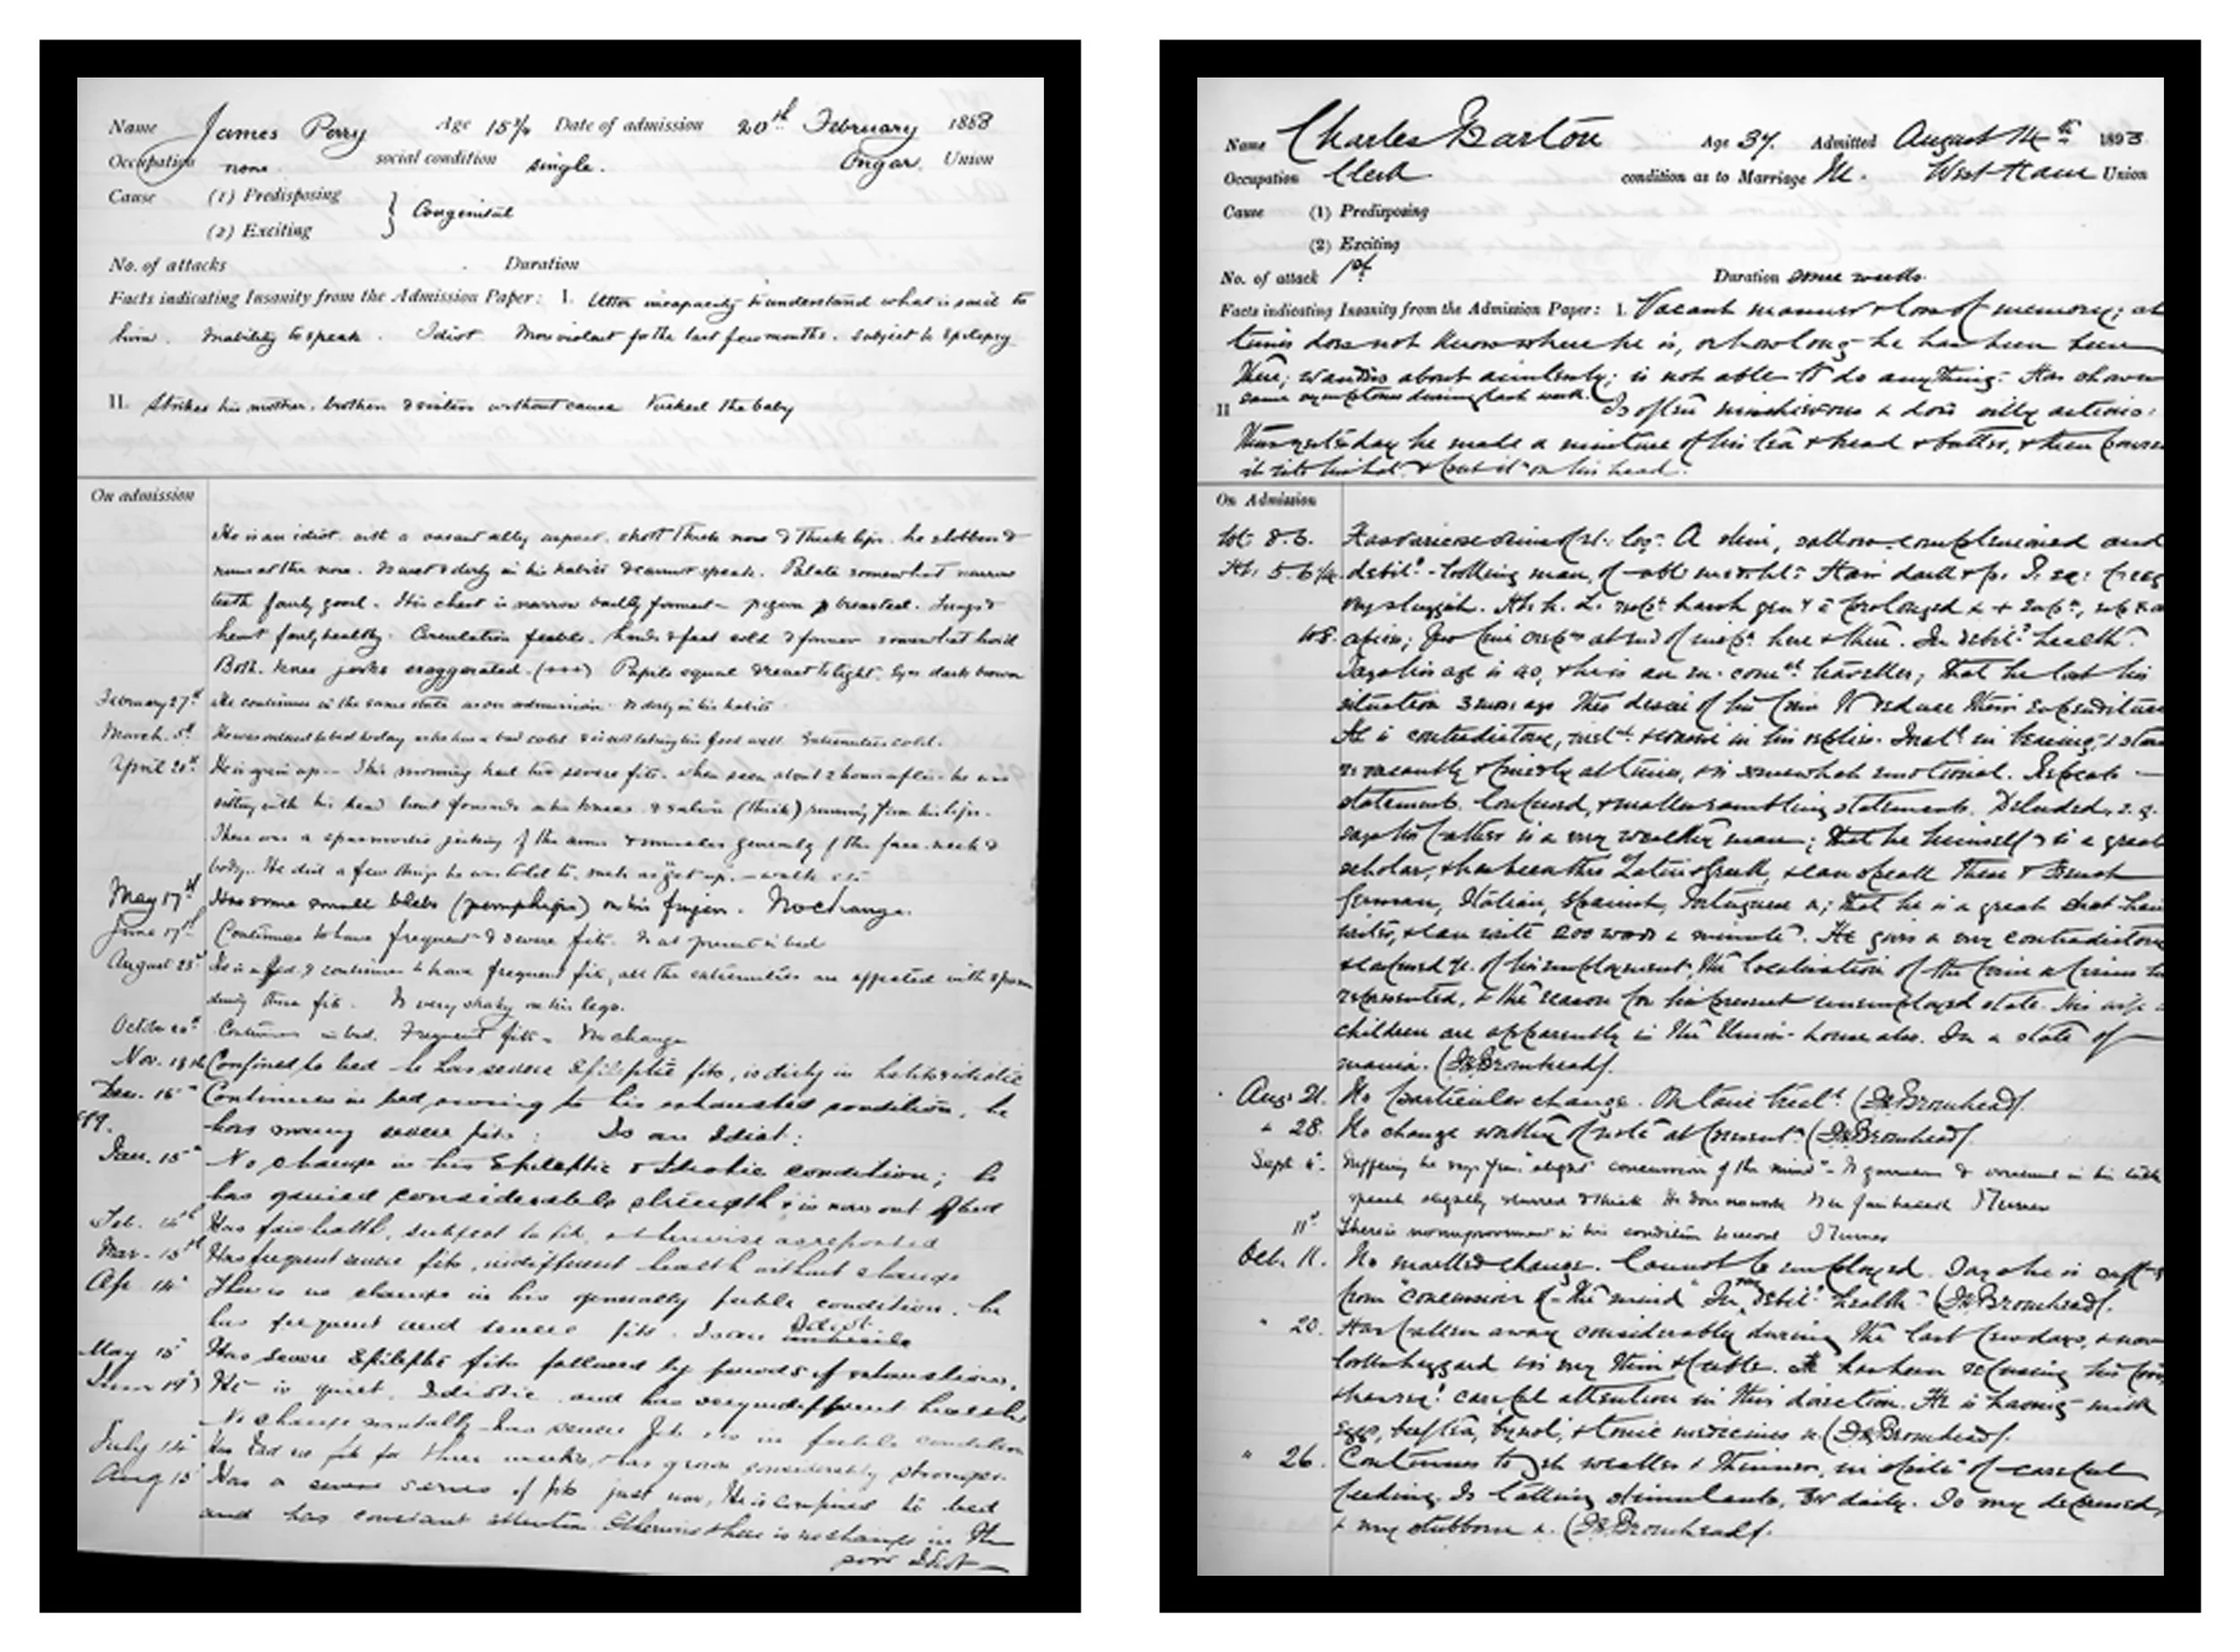 Name James Perry Age 15¾ Date of admission 20th February 1888
Occupation none social condition single. Ongar. Union
Cause (1) Predisposing } Congenital
(2) Exciting
No. of attacks Duration
Facts indicating Insanity from the Admission Paper: I. Utter incapacity to understand what is said to
him. Inability to speak. Idiot. More violent for the last few months. Subject to Epilepsy
II. Strikes his mother, brothers & sisters without cause Kicked the baby
On admission
He is an idiot with a vacant silly aspect, short thick nose & thick lips. he slobbers &
runs at the nose. Is wet & dirty in his habits & cannot speak. Palate somewhat narrow
teeth fairly good. His chest is narrow badly formed - pigeon breasted. Lungs &
heart fairly healthy. Circulation feeble. hands & feet cold & former somewhat livid
Both knee jerks exaggerated. Pupils equal & react to light. Eyes dark brown
February 27th He continues in the same state as on admission. Is dirty in his habits
March 5th He was ordered to bed today as he has a bad cold & is not taking his food well. Extremities cold.
April 20th He is again up - This morning had two severe fits. when seen about 2 hours after he was
sitting with his head bent forwards on his knees & saliva (thick) running from his lips.
There was a spasmodic jerking of the arms & muscles generally of the face neck &
body. He did a few things he was told to, such as "get up" - walk etc
May 17th Has some small blebs (pemphigus) on his fingers. No change.
June 17th Continues to have frequent & severe fits. Is at present in bed
August 25th He is in bed & continues to have frequent fits, all the extremities are affected with spasm
during these fits. Is very shaky on his legs.
October 20th Continues in bed. Frequent fits - No change
Nov. 18th Confined to bed - he has severe Epileptic fits, is dirty in habits & idiotic
Dec. 15th Continues in bed owing to his exhausted condition, he
89. has many severe fits: Is an Idiot:
Jan. 15th No change in his Epileptic & Idiotic condition; he
has gained considerable strength & is now out of bed
Feb. 14th Has fair health, subject to fits, otherwise as reported
Mar. 15th Has frequent severe fits, indifferent health without change
Apr. 14th There is no change in his generally feeble condition. he
has frequent and severe fits. Is an Idiot imbecile
May 15th Has severe Epileptic fits followed by periods of exhaustion.
June 19th He is quiet, Idiotic and has very indifferent health
No change mentally has severe fits & is in feeble condition
July 14th Has had no fits for three weeks, has grown considerably stronger.
Aug 15th Has a severe series of fits just now, He is confined to bed
and has constant attention. Otherwise there is no change in the
poor Idiot
Name Charles Barton Age 37. Admitted August 14th 1893
Occupation Clerk condition as to Marriage M. West Ham Union
Cause (1) Predisposing
(2) Exciting
No. of attack 1st Duration some weeks
Facts indicating Insanity from the Admission Paper: I. Vacant manner & loss of memory; at
times does not know where he is, or how long he has been here
there; wanders about aimlessly; is not able to do anything. Has shown
same symptoms during last week.
II Is often mischievous & does silly actions:
Thus yesterday he made a mixture of his tea & bread & butter, & then poured
it into his hat & put it on his head.
On Admission
Wt. 8.6. Has varicose veins of leg. A thin, sallow-complexioned and
Ht. 5.6¼ debil.d-looking man, of Hair dark
very sluggish. prolonged
here & there. In debil.d health.
Says his age is 40, & he is an traveller; that he lost his
situation 3 mos ago thro desire of his firm to reduce their expenditure
He is contradictory, & evasive in his replies. in bearing, & stares
vacantly & fixedly at times, & is somewhat emotional. Repeats
statements. Confused, & makes rambling statements. Deluded, e.g.
says his father is a very wealthy man; that he himself is a great
scholar, & has been thro Latin & Greek, & can speak these & French
German, Italian, Spanish, Portuguese &; that he is a great short-hand
writer, & can write 200 words a minute. He gives a very contradictory
& confused of his employment, the localisation of the firm or firms he
represented, & the reason for his present unemployed state. His wife &
children are apparently in the Union-house also. In a state of
mania. (Dr Bromhead).
Aug 21. No particular change. On tonic treat.t (Dr Bromhead).
" 28. No change worthy of note at present. (Dr Bromhead).
Sept 4th Suffering he says from "slight concussion of the mind" - Is garrulous & in his talk
speech slightly slurred & thick He does no work Is in fair health J Turner
11th There is no improvement in his condition to record J Turner
Oct. 11. No marked change. Cannot be employed. Says he is suffering
from "concussion of the mind" In very debil.d health. (Dr Bromhead).
" 20. Has fallen away considerably during the last few days, & now
looks haggard & is very thin & feeble. He has been refusing his food,
& careful attention in this direction. He is having milk
eggs, beef tea, bynol, & tonic medicines &. (Dr Bromhead).
" 26. Continues to get weaker & thinner, in spite of careful
feeding. Is taking stimulants, daily. Is very depressed,
& very stubborn &. (Dr Bromhead).